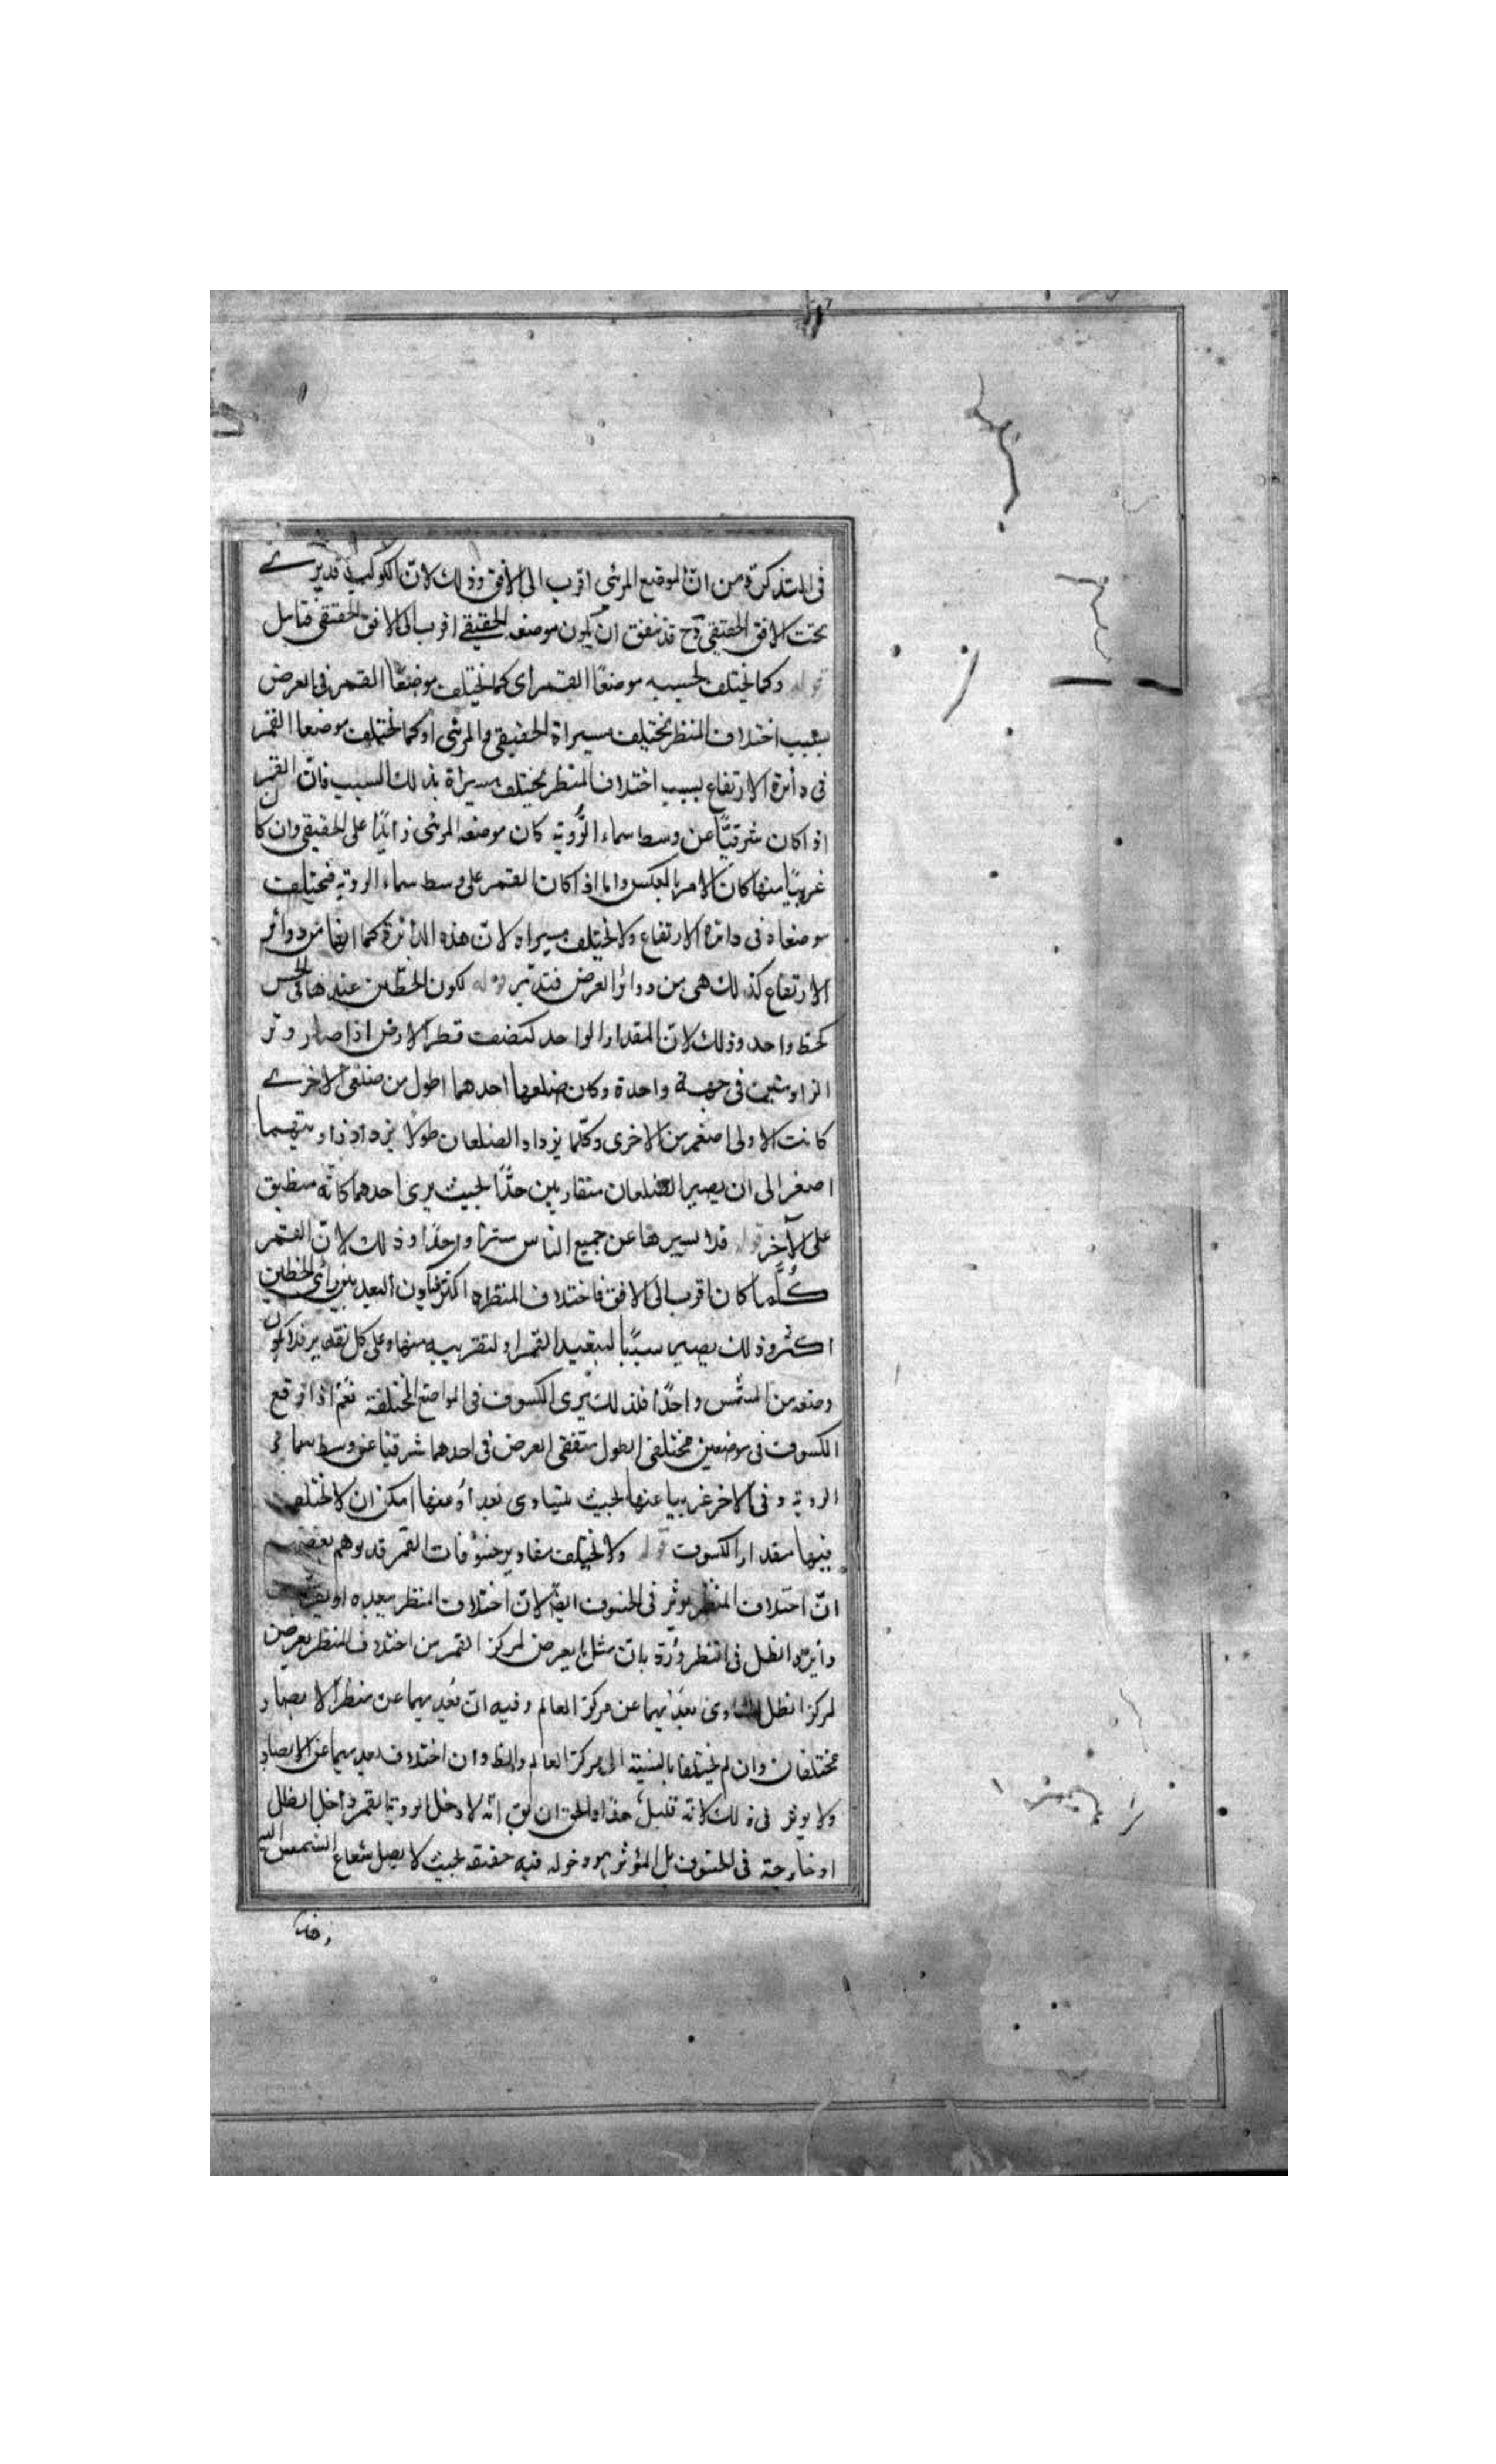 فى التذكرة من انّ الموضع المرئى اقرب الى الافق وذلك لانّ الكوكب قد يرى
تحت الافق الحقيقى وح قد يتفق ان يكون موضعه الحقيقى اقرب الى الافق الحقيقى فتامل
قوله وكما يختلف بحسبه موضعا القمر اى كما يختلف موضعا القمر فى العرض
بسبب اختلاف المنظر يختلف مسيراه الحقيقى والمرئى او كما يختلف موضعا القمر
فى دائرة الارتفاع بسبب اختلاف المنظر يختلف مسيراه بذلك السبب فانّ القمر
اذا كان شرقيّا عن وسط سماء الرّوية كان موضعه المرئى زايدًا على الحقيقى وان كان
غربيّا منها كان الامر بالعكس واما اذا كان القمر على وسط سماء الروية فيختلف
موضعاه فى دائرة الارتفاع ولا يختلف مسيراه لانّ هذه الدائرة كما انها من دوائر
الارتفاع كذلك هى من دوائر العرض فتدبّر قوله لكون الخطّين عندها فى الحس
كخط واحد وذلك لانّ المقدار الواحد كنصف قطر الارض اذا صار وتر
الزاويتين فى جهة واحدة وكان ضلعها احدهما اطول من ضلعى الاخرى
كانت الاولى اصغر من الاخرى وكلّما يزداد الضلعان طولا يزداد زاويتهما
اصغر الى ان يصير الضلعان متقاربين جدًّا بحيث يرى احدهما كانّه منطبق
على الآخر قوله فلا يسيرها عن جميع الناس سترًا واحدًا وذلك لانّ القمر
كُلّما كان اقرب الى الافق فاختلاف المنظر له اكثر فيكون البعد بين راى الخطين
اكثر وذلك يصير سببًا لتبعيد القمر او لتقريبه منها وعلى كل تقدير فلا يكون
وضعه من الشمس واحدًا فلذلك يرى الكسوف فى المواضع المختلفة نعم اذا وقع
الكسوف فى موضعين مختلفى الطول متفقى العرض فى احدهما شرقيا عن وسط سماء
الروية وفى الاخر غربيا عنها بحيث يتساوى بعداه منها امكن ان لا يختلف
فيها مقدار الكسوف قوله ولا يختلف مقادير خسوفات القمر قد يوهم بعضهم
انّ اختلاف المنظر يؤثر فى الخسوف ايضًا لانّ اختلاف المنظر يبعده او يقربه
دائرة الظل فى المنظر وردّ بان مثل ما يعرض لمركز القمر من اختلاف المنظر يعرض
لمركز الظل لتساوى بعديهما عن مركز العالم وفيه انّ بعديهما عن منظر الابصار
مختلفان وان لم يختلفا بالنسبة الى مركز العالم اختلاف بعديهما عن الابصار
ولا يوثر فى ذلك لانه قليل جدًا والحق ان يق انّه لا دخل لروية القمر داخل الظل
او خارجة فى الخسوف بل المؤثر هو دخوله فيه حقيقة بحيث لا يصل شعاع الشمس اليه